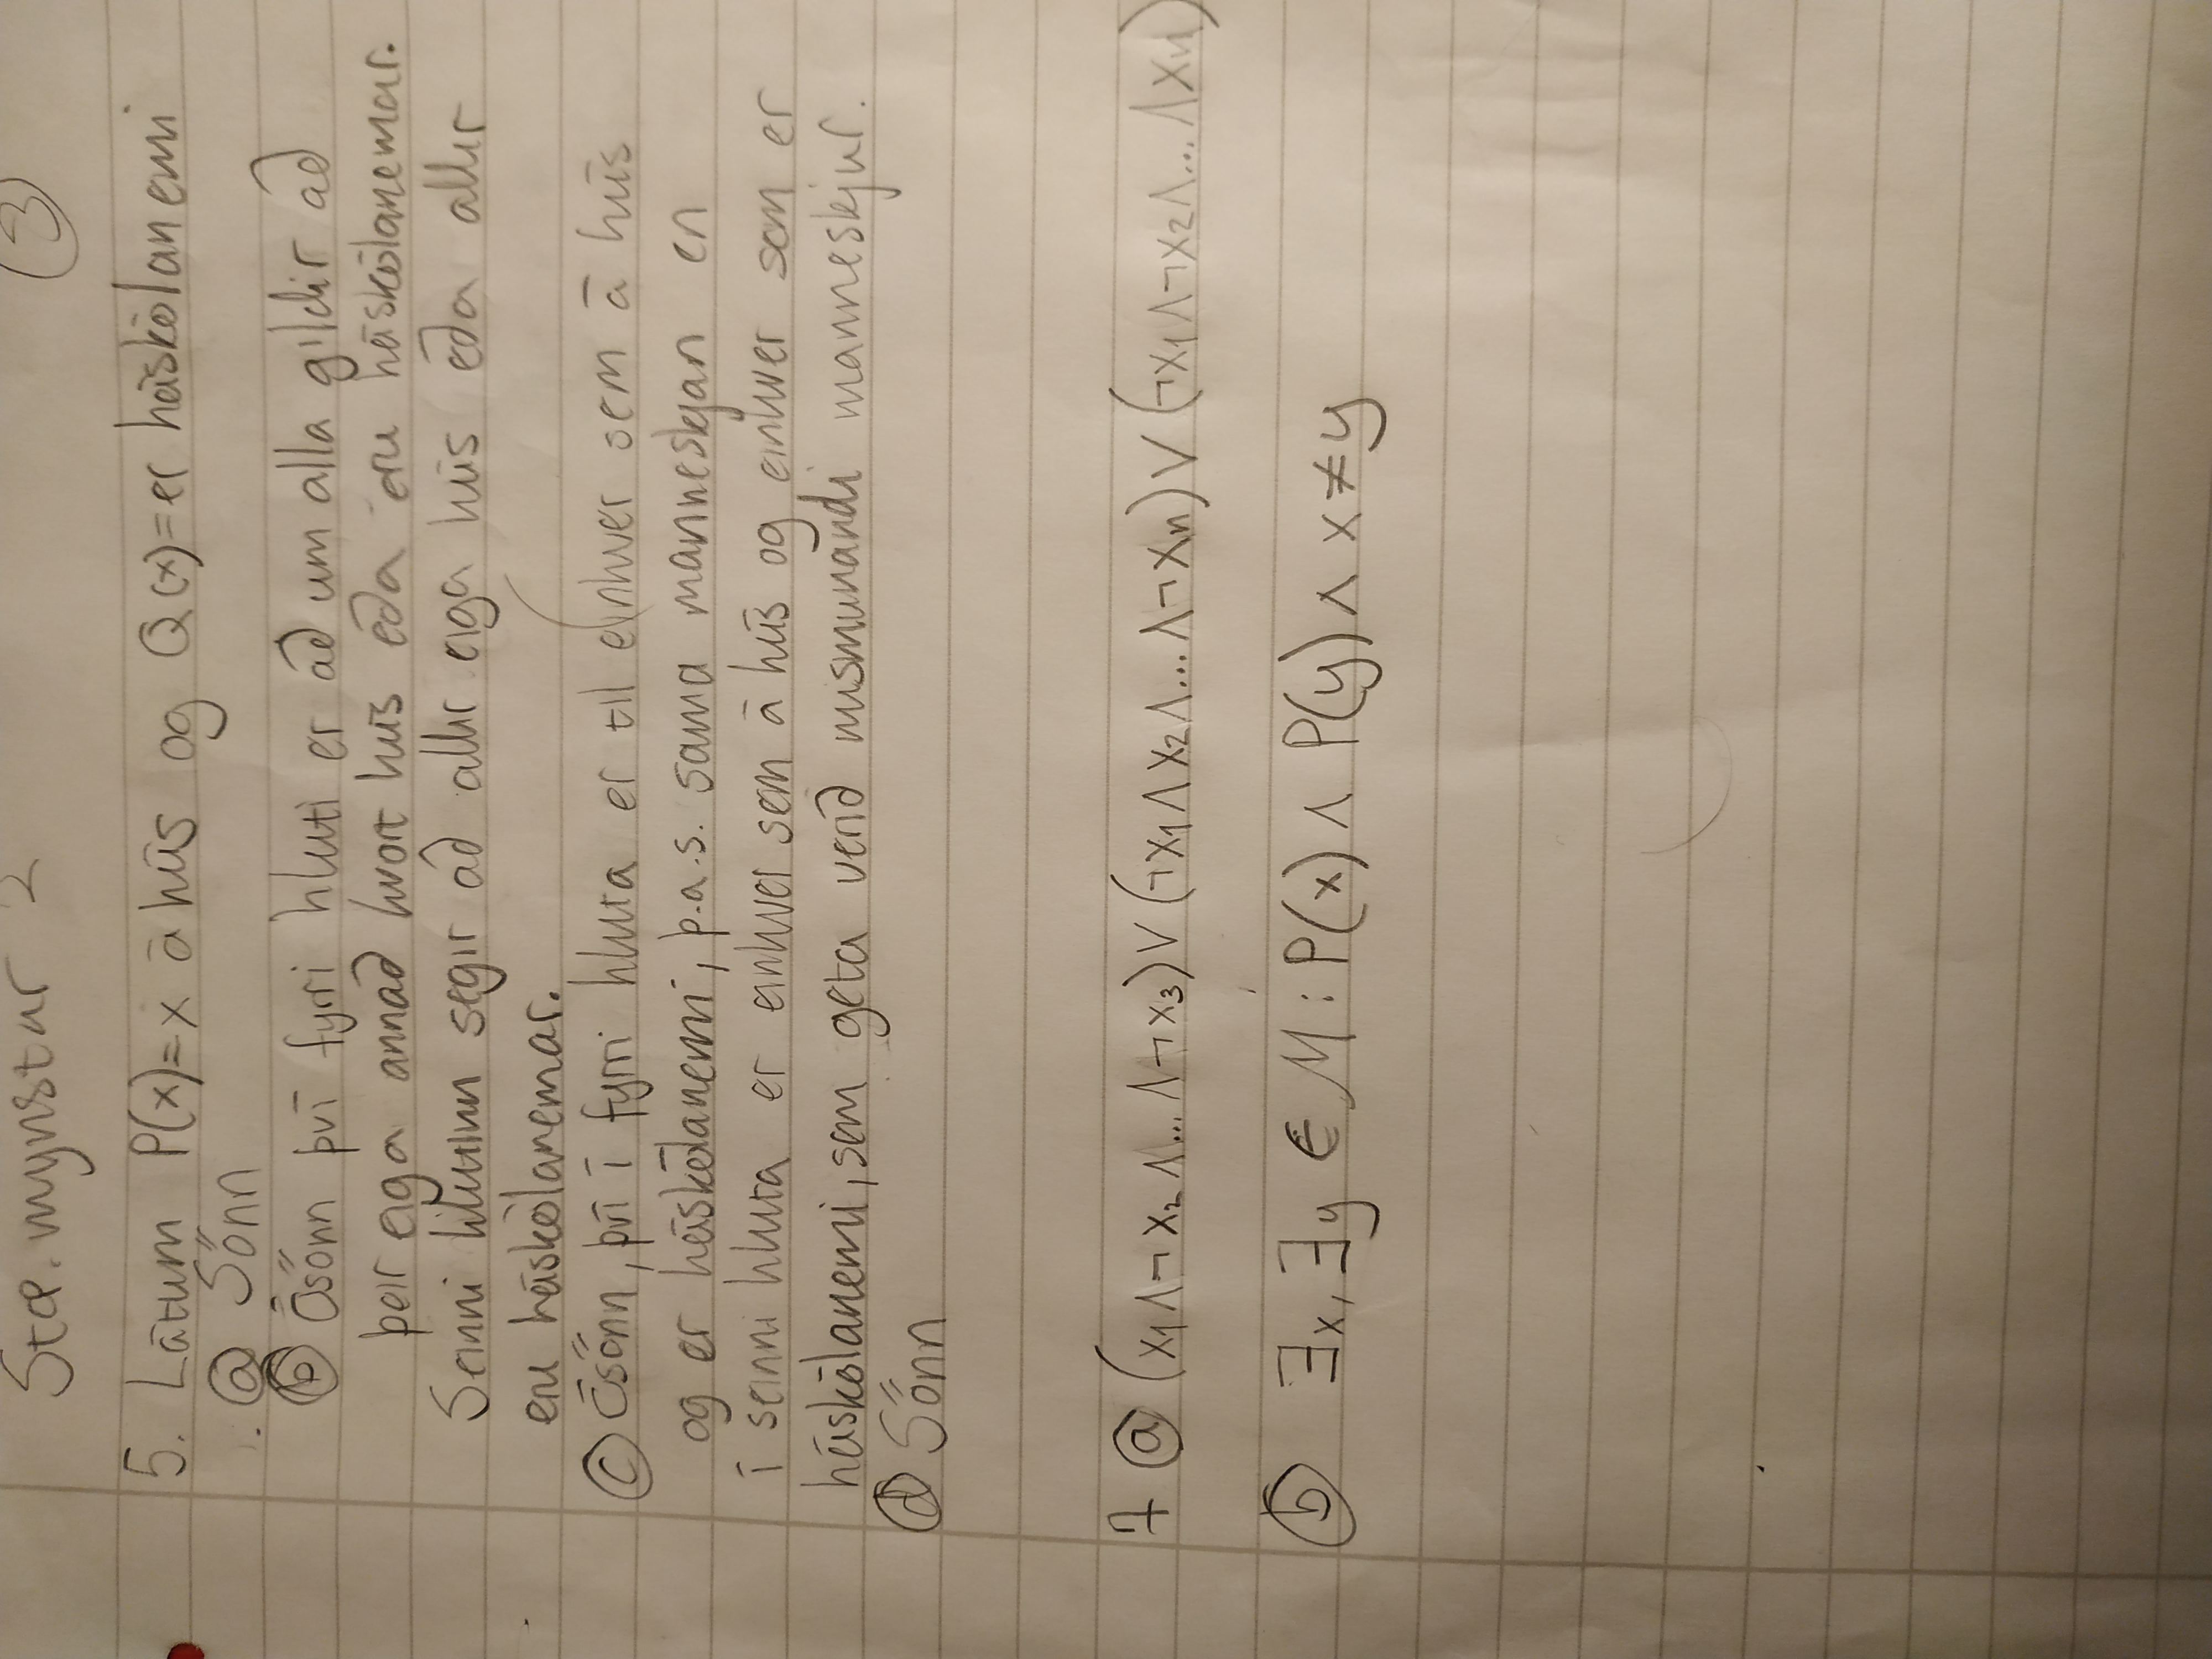 Stæ. mynstur 2 (3)
5. Látum P(x)=x á hús og Q(x)=er háskólanemi
(a) Sönn
(b) Ósönn því fyrri hluti er að um alla gildir að
þeir eiga annað hvort hús eða eru háskólanemar.
Seinni hlutinn segir að allir eiga hús eða allir
eru háskólanemar.
(c) Ósönn, því í fyrri hluta er til einhver sem á hús
og er háskólanemi, þ.a.s. sama manneskjan en
í seinni hluta er einhver sem á hús og einhver sem er
háskólanemi, sem geta verið mismunandi manneskjur.
(d) Sönn
7 (a) (x₁∧¬x₂∧...∧¬x₃)∨(¬x₁∧x₂∧...∧¬xₙ)∨(¬x₁∧¬x₂∧...∧xₙ)
(b) ∃x, ∃y ∈ M : P(x) ∧ P(y) ∧ x ≠ y